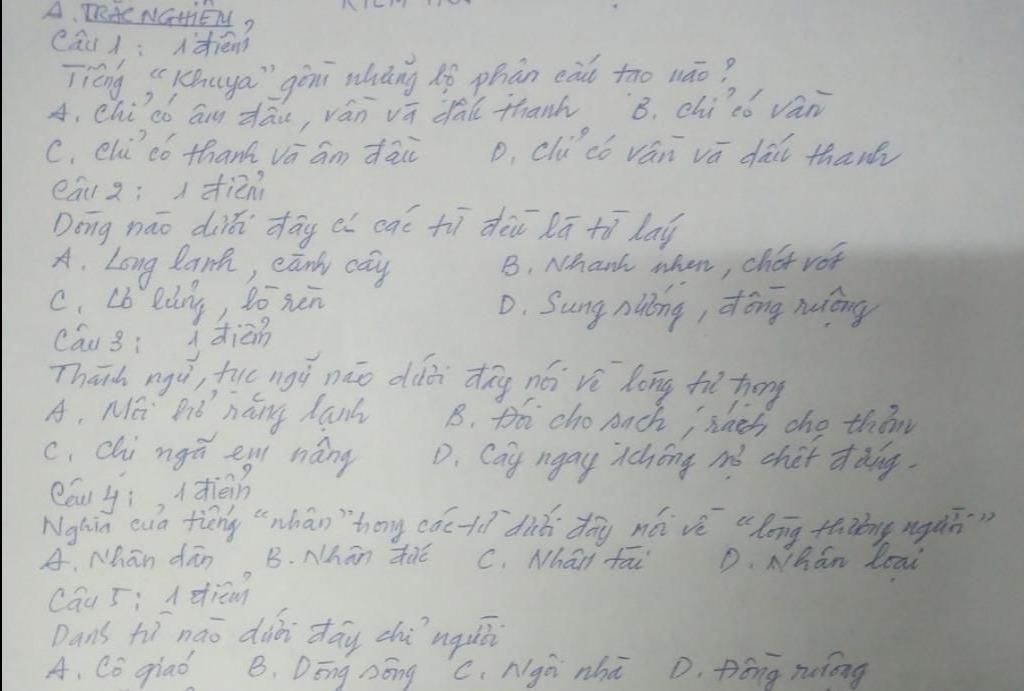 A. TRẮC NGHIỆM
Câu 1: 1 điểm
Tiếng "Khuya" gồm những bộ phận cấu tạo nào?
A. Chỉ có âm đầu, vần và dấu thanh B. chỉ có vần
C. Chỉ có thanh và âm đầu D. Chỉ có vần và dấu thanh
Câu 2: 1 điểm
Dòng nào dưới đây có các từ đều là từ láy
A. Long lanh, cành cây B. Nhanh nhẹn, chót vót
C. Lơ lửng, lò rèn D. Sung sướng, đồng ruộng
Câu 3: 1 điểm
Thành ngữ, tục ngữ nào dưới đây nói về lòng tự trọng
A. Môi hở răng lạnh B. Đói cho sạch, rách cho thơm
C. Chị ngã em nâng D. Cây ngay không sợ chết đứng.
Câu 4: 1 điểm
Nghĩa của tiếng "nhân" trong các từ dưới đây nói về "lòng thương người"
A. Nhân dân B. Nhân đức C. Nhân tài D. Nhân loại
Câu 5: 1 điểm
Danh từ nào dưới đây chỉ người
A. Cô giáo B. Dòng sông C. Ngôi nhà D. Đồng ruộng